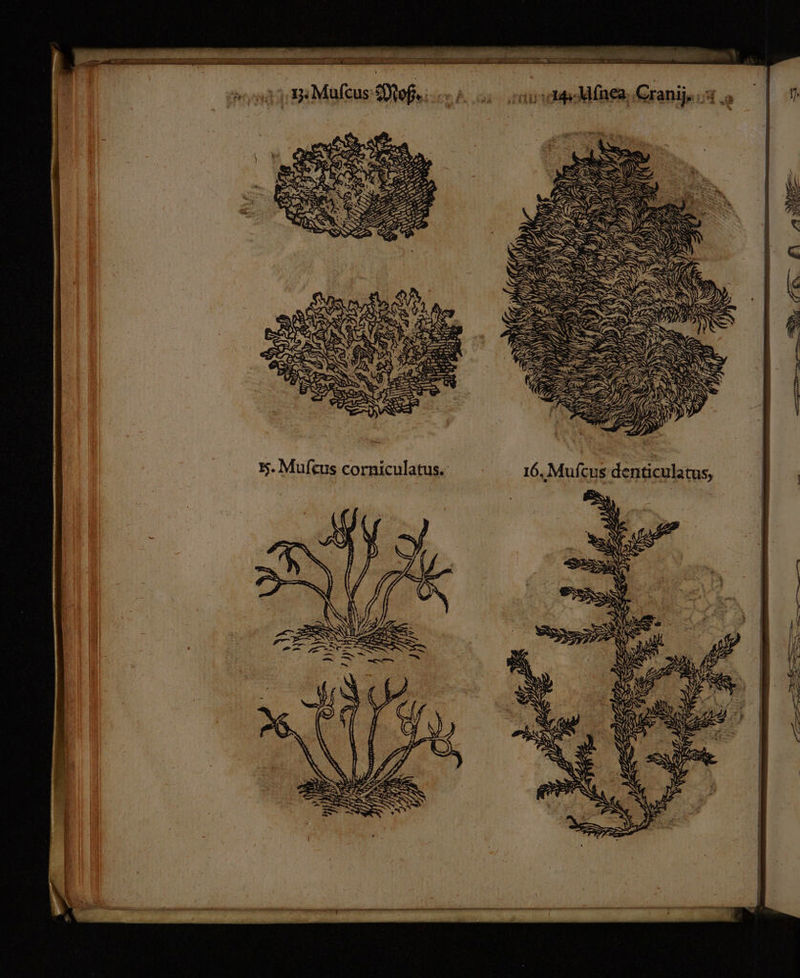 13. Muſcus Moſz.
14. Uſnea Cranij.
15. Muſcus corniculatus.
16. Muſcus denticulatus,